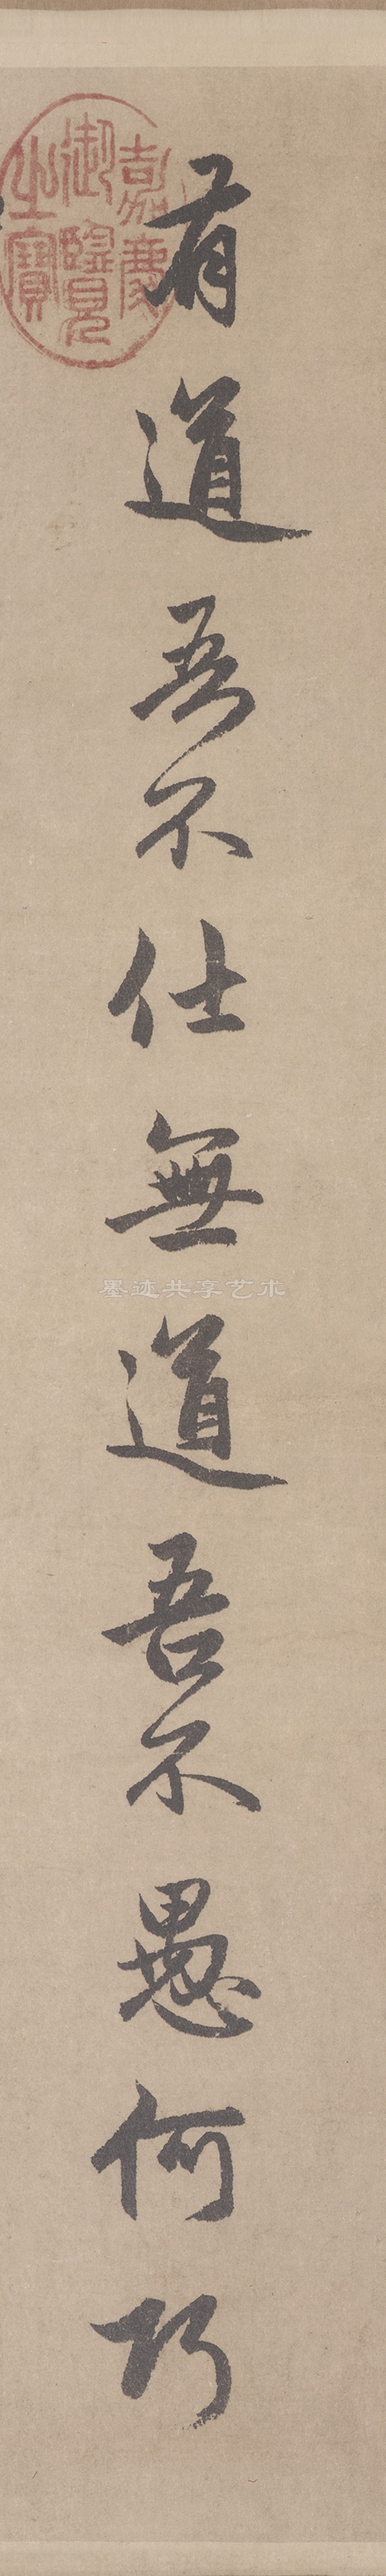 有道吾不仕無道吾不愚何巧
嘉慶御覽之寶
墨迹共享艺术